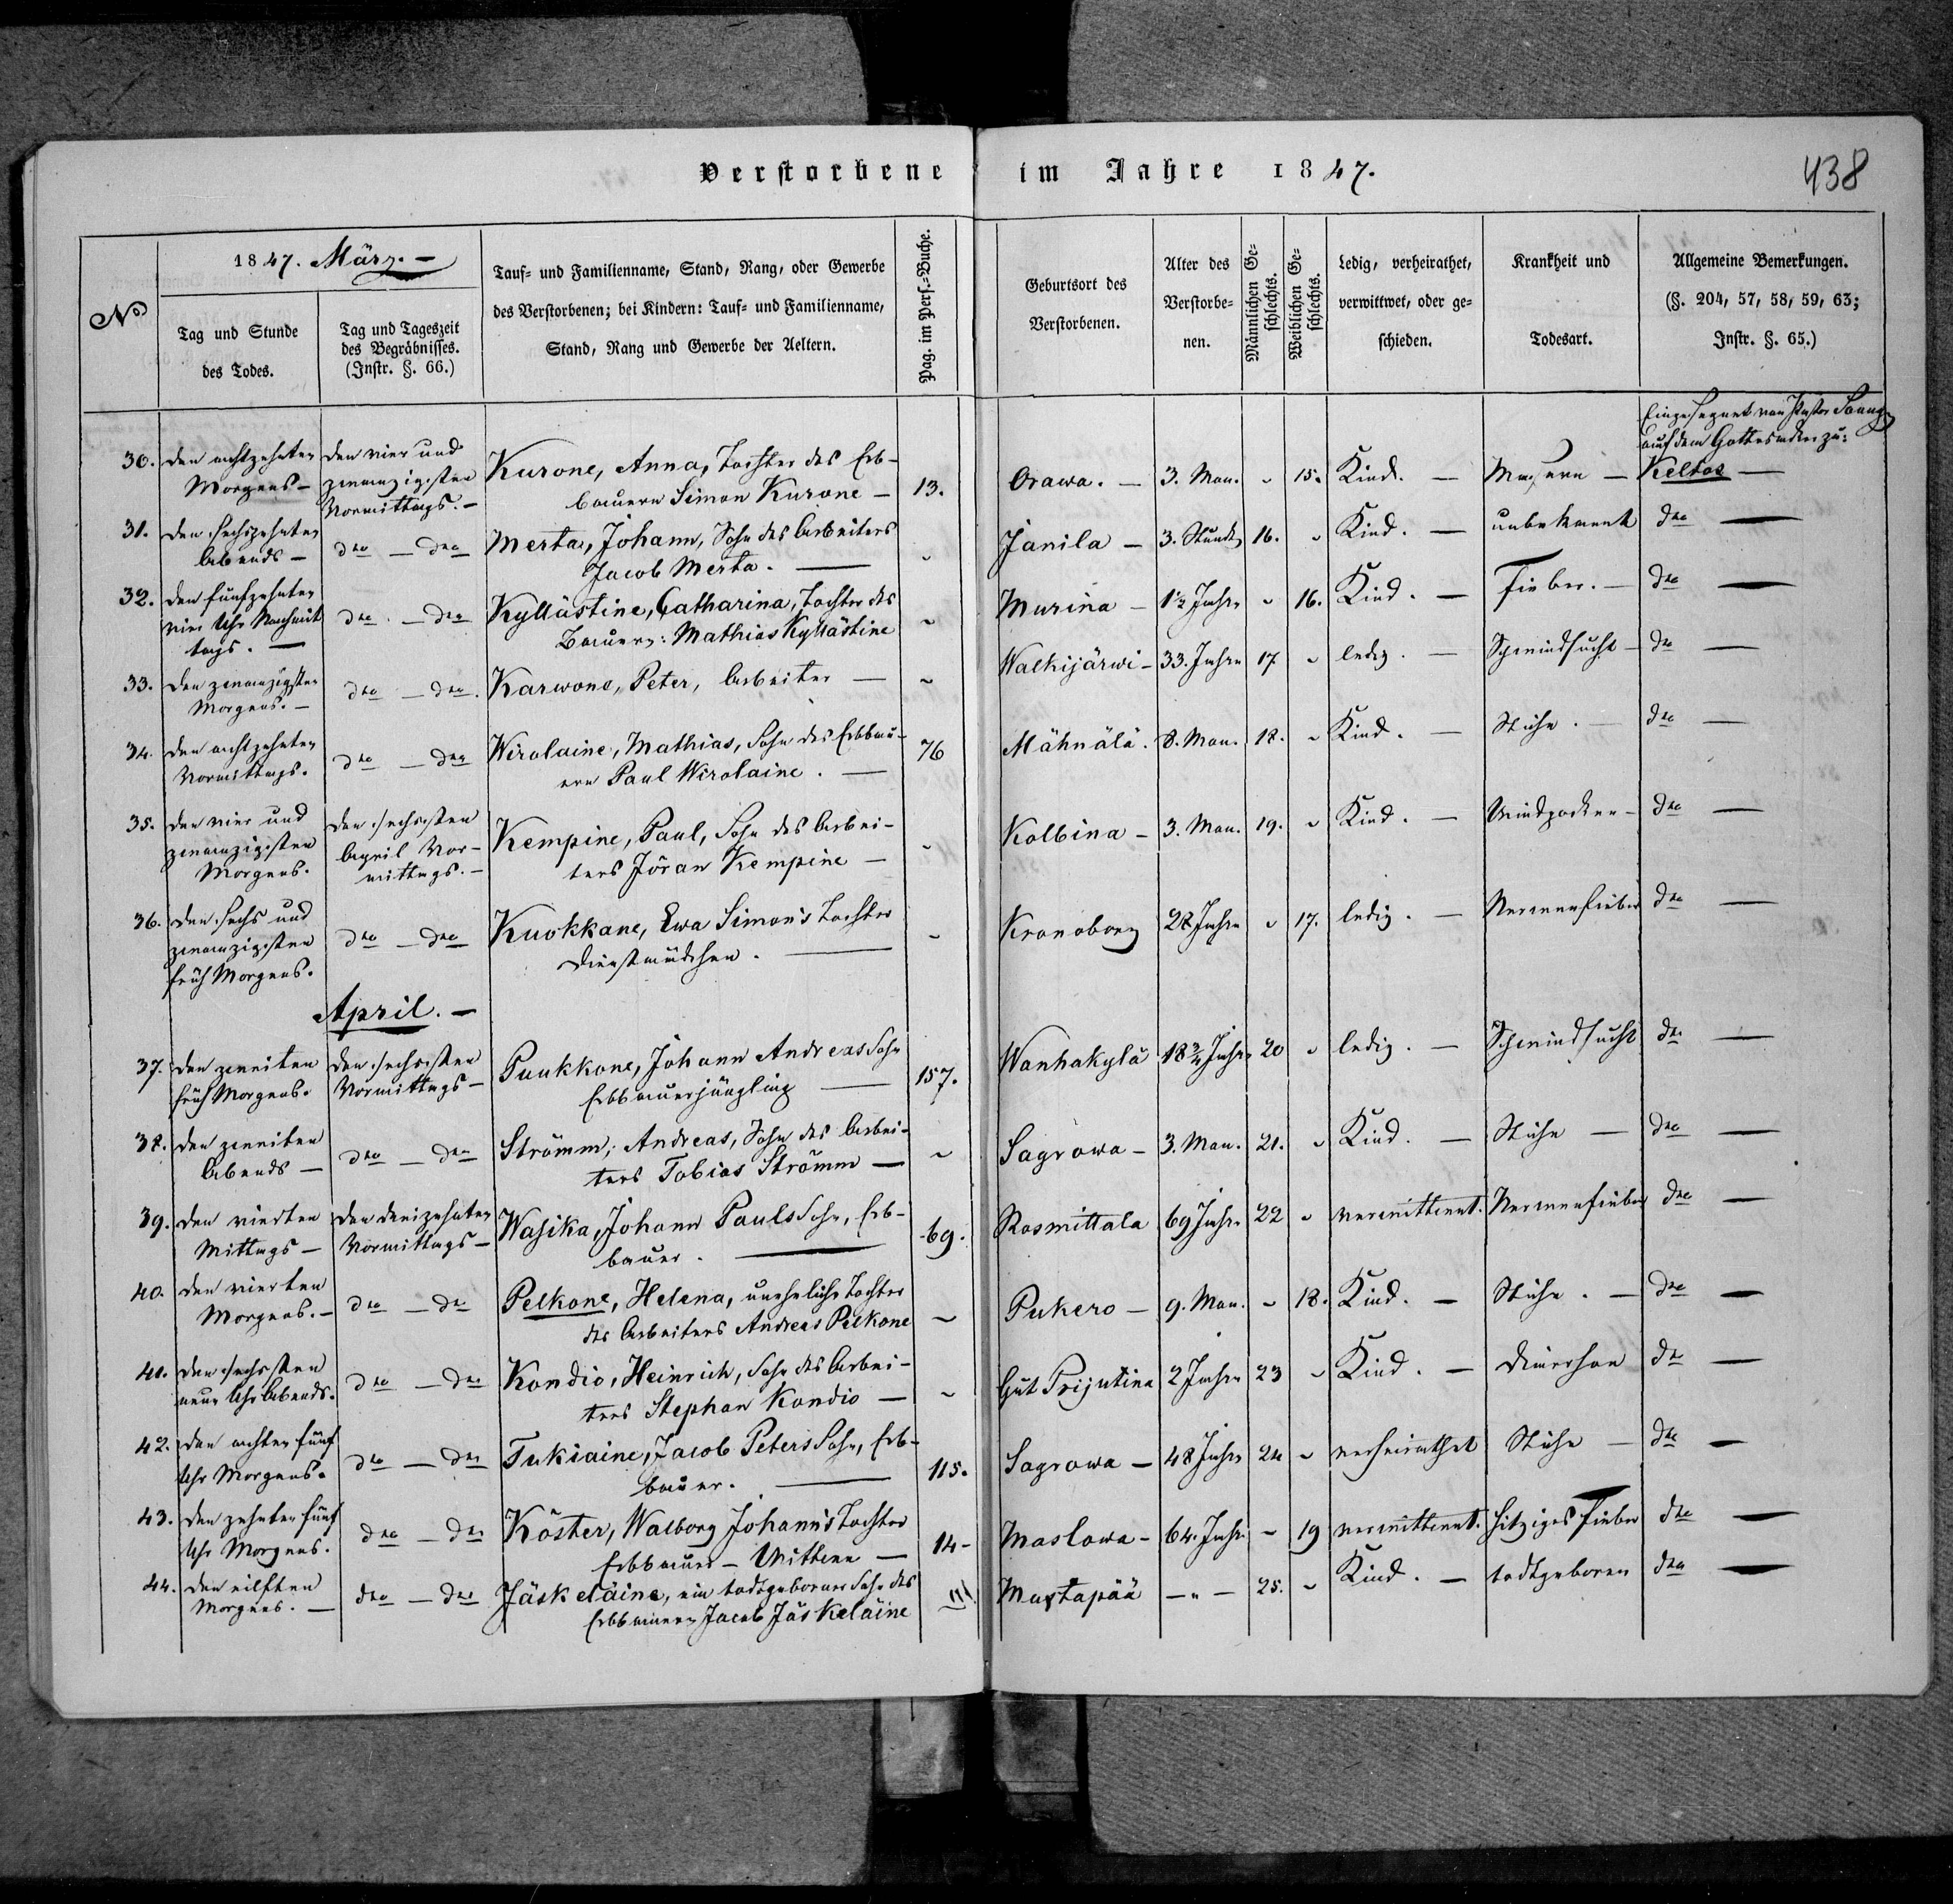 Verstorbene im Jahre 1847.
438
No
1847. März. —
Tag und Stunde
des Todes.
Tag und Tageszeit
des Begräbnisses.
(Instr. §. 66.)
Tauf- und Familienname, Stand, Rang, oder Gewerbe
des Verstorbenen; bei Kindern: Tauf- und Familienname,
Stand, Rang und Gewerbe der Aeltern.
Pag. im Pers.-Buche.
Geburtsort des
Verstorbenen.
Alter des
Verstorbe-
nen.
Männlichen Ge-
schlechts.
Weiblichen Ge-
schlechts.
Ledig, verheirathet,
verwittwet, oder ge-
schieden.
Krankheit und
Todesart.
Allgemeine Bemerkungen.
(§. 204, 57, 58, 59, 63;
Instr. §. 65.)
30.
den achtzehnten
Morgens —
den vier und
zwanzigsten
Vormittags. —
Kurone, Anna, Tochter des Erb-
bauern Simon Kurone —
13.
Orawa. —
3. Mon.
"
15.
Kind. —
Masern —
Eingesegnet von Pastor
auf dem Gottesacker zu:
Keltos —
31.
den sechszehnten
Abends —
dto — dto
Merta, Johann, Sohn des Arbeiters
Jacob Merta. —
"
Janila —
3. Stunde
16.
"
Kind. —
unbekannt
dto —
32.
den fünfzehnten
vier Uhr Nachmit
tags. —
dto. — dto
Kyllästine, Catharina, Tochter des
Bauern: Mathias Kyllästine
"
Murina —
1½ Jahr
"
16.
Kind. —
Fieber. —
dto —
33.
den zwanzigsten
Morgens. —
dto — dto.
Karwone, Peter, Arbeiter —
"
Walkijärwi —
33. Jahre
17
"
ledig. —
Schwindsucht —
dto —
34.
den achtzehnten
Vormittags.
dto — dto
Wirolaine, Mathias, Sohn des Erbbau-
ern Paul Wirolaine. —
76
Mähnälä.
8. Mon.
18.
"
Kind. —
Ruhr. —
dto —
35.
den vier und
zwanzigsten
Morgens.
den sechsten
April Vor-
mittags. —
Kempine, Paul, Sohn des Arbei-
ters Jöran Kempine —
"
Kolbina —
3. Mon.
19.
"
Kind. —
Windpocken —
dto —
36.
den sechs und
zwanzigsten
früh Morgens.
dto — dto
Kuokkane, Ewa Simon's Tochter
Dienstmädchen. —
"
Kronoborg
28 Jahre
"
17.
ledig. —
Nervenfieber
dto —
April. —
37.
den zweiten
früh Morgens.
den sechsten
Vormittags —
Puukkone, Johann Andreas Sohn
Erbbauerjüngling —
157.
Wanhakylä
18¾ Jahr
20
"
ledig. —
Schwindsucht
dto —
38.
den zweiten
Abends —
dto — dto
Strömm, Andreas, Sohn des Arbei-
ters Tobias Strömm —
"
Sagrowa —
3. Mon.
21.
"
Kind. —
Ruhr —
dto —
39.
den vierten
Mittags —
den dreizehnten
Vormittags —
Wasika, Johann Pauls Sohn, Erb-
bauer. —
69.
Rosmittala
69 Jahr
22
"
verwittwet.
Nervenfieber
dto —
40.
den vierten
Morgens. —
dto — dto
Pelkone, Helena, uneheliche Tochter
des Arbeiters Andreas Pelkone
"
Pukero —
9. Mon.
"
18.
Kind. —
Ruhr. —
dto —
41.
den sechsten
neun Uhr Abends.
dto — dto
Kondio, Heinrich, Sohn des Arbei-
ters Stephan Kondio —
"
Gut Prijutina
2 Jahre
23
"
Kind. —
Diarrhoe
dto —
42.
den achten fünf
Uhr Morgens.
dto — dto
Tukiaine, Jacob Peters Sohn, Erb-
bauer. —
115.
Sagrowa —
48 Jahr
24
"
verheirathet
Ruhr —
dto —
43.
den zehnten fünf
Uhr Morgens.
dto — dto
Köster, Walborg Johann's Tochter
Erbbauer — Wittwe —
14 —
Maslowa —
64. Jahr
"
19
verwittwet.
hitziges Fieber
dto —
44.
den eilften
Morgens. —
dto — dto
Jäskeläine, ein todtgeborner Sohn des
Erbbauern Jacob Jäskeläine
Mustapää
— " —
25.
"
Kind. —
todtgeboren
dto —